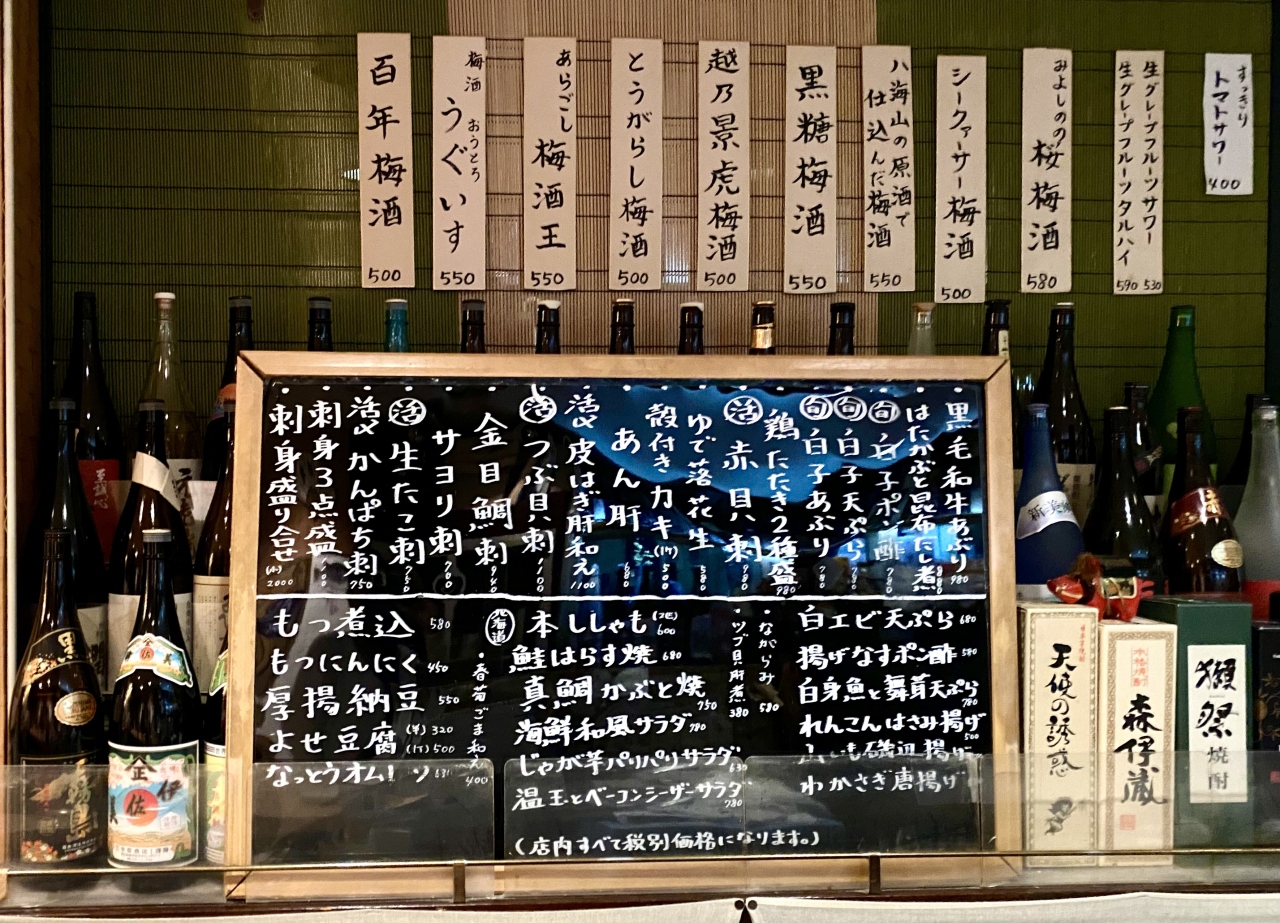 すっきり
トマトサワー
400
生グレープフルーツサワー
530
生グレープフルーツタルハイ
590
みよしのの
桜梅酒
580
シークァーサー梅酒
500
八海山の原酒で
仕込んだ梅酒
550
黒糖梅酒
550
越乃景虎梅酒
500
とうがらし梅酒
500
あらごし
梅酒王
550
梅酒 おうとろ
うぐいす
550
百年梅酒
500
・黒毛和牛あぶり 980
・はたかぶと昆布だし煮
・旬 白子ポン酢 780
・旬 白子天ぷら 780
・旬 白子あぶり 780
・鶏たたき2種盛 980
・活 赤貝刺 980
・ゆで落花生 580
・殻付きカキ(1ケ) 500
・あん肝 680
・活〆皮はぎ肝和え 1100
活 つぶ貝刺 1100
・金目鯛刺 980
・サヨリ刺 780
・活 生たこ刺 780
・活〆かんぱち刺 750
・刺身3点盛
・刺身盛り合せ 2000
もつ煮込 580
もつにんにく 450
厚揚納豆 550
よせ豆腐 (半) 320
(1丁) 500
なっとうオム
・春菊ごま和え 400
北海道 本ししゃも (2匹) 600
鮭はらす焼 680
真鯛かぶと焼 750
海鮮和風サラダ 780
じゃが芋パリパリサラダ 630
温玉とベーコンシーザーサラダ 780
(店内すべて税別価格になります。)
・ながらみ 580
・ツブ貝肝煮 380
白エビ天ぷら 680
揚げなすポン酢 580
白身魚と舞茸天ぷら 780
れんこんはさみ揚げ 500
山いも磯辺揚げ
わかさぎ唐揚げ
伊佐
天使の誘惑
本格焼酎
森伊蔵
獺祭
焼酎